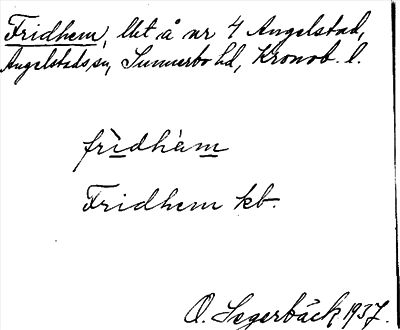 Fridhem, lht å nr 4 Angelstad,
Angelstads sn, Sunnerbo hd, Kronob. l.
frìdhèm
Fridhem kb.
O. Segerbäck 1937.